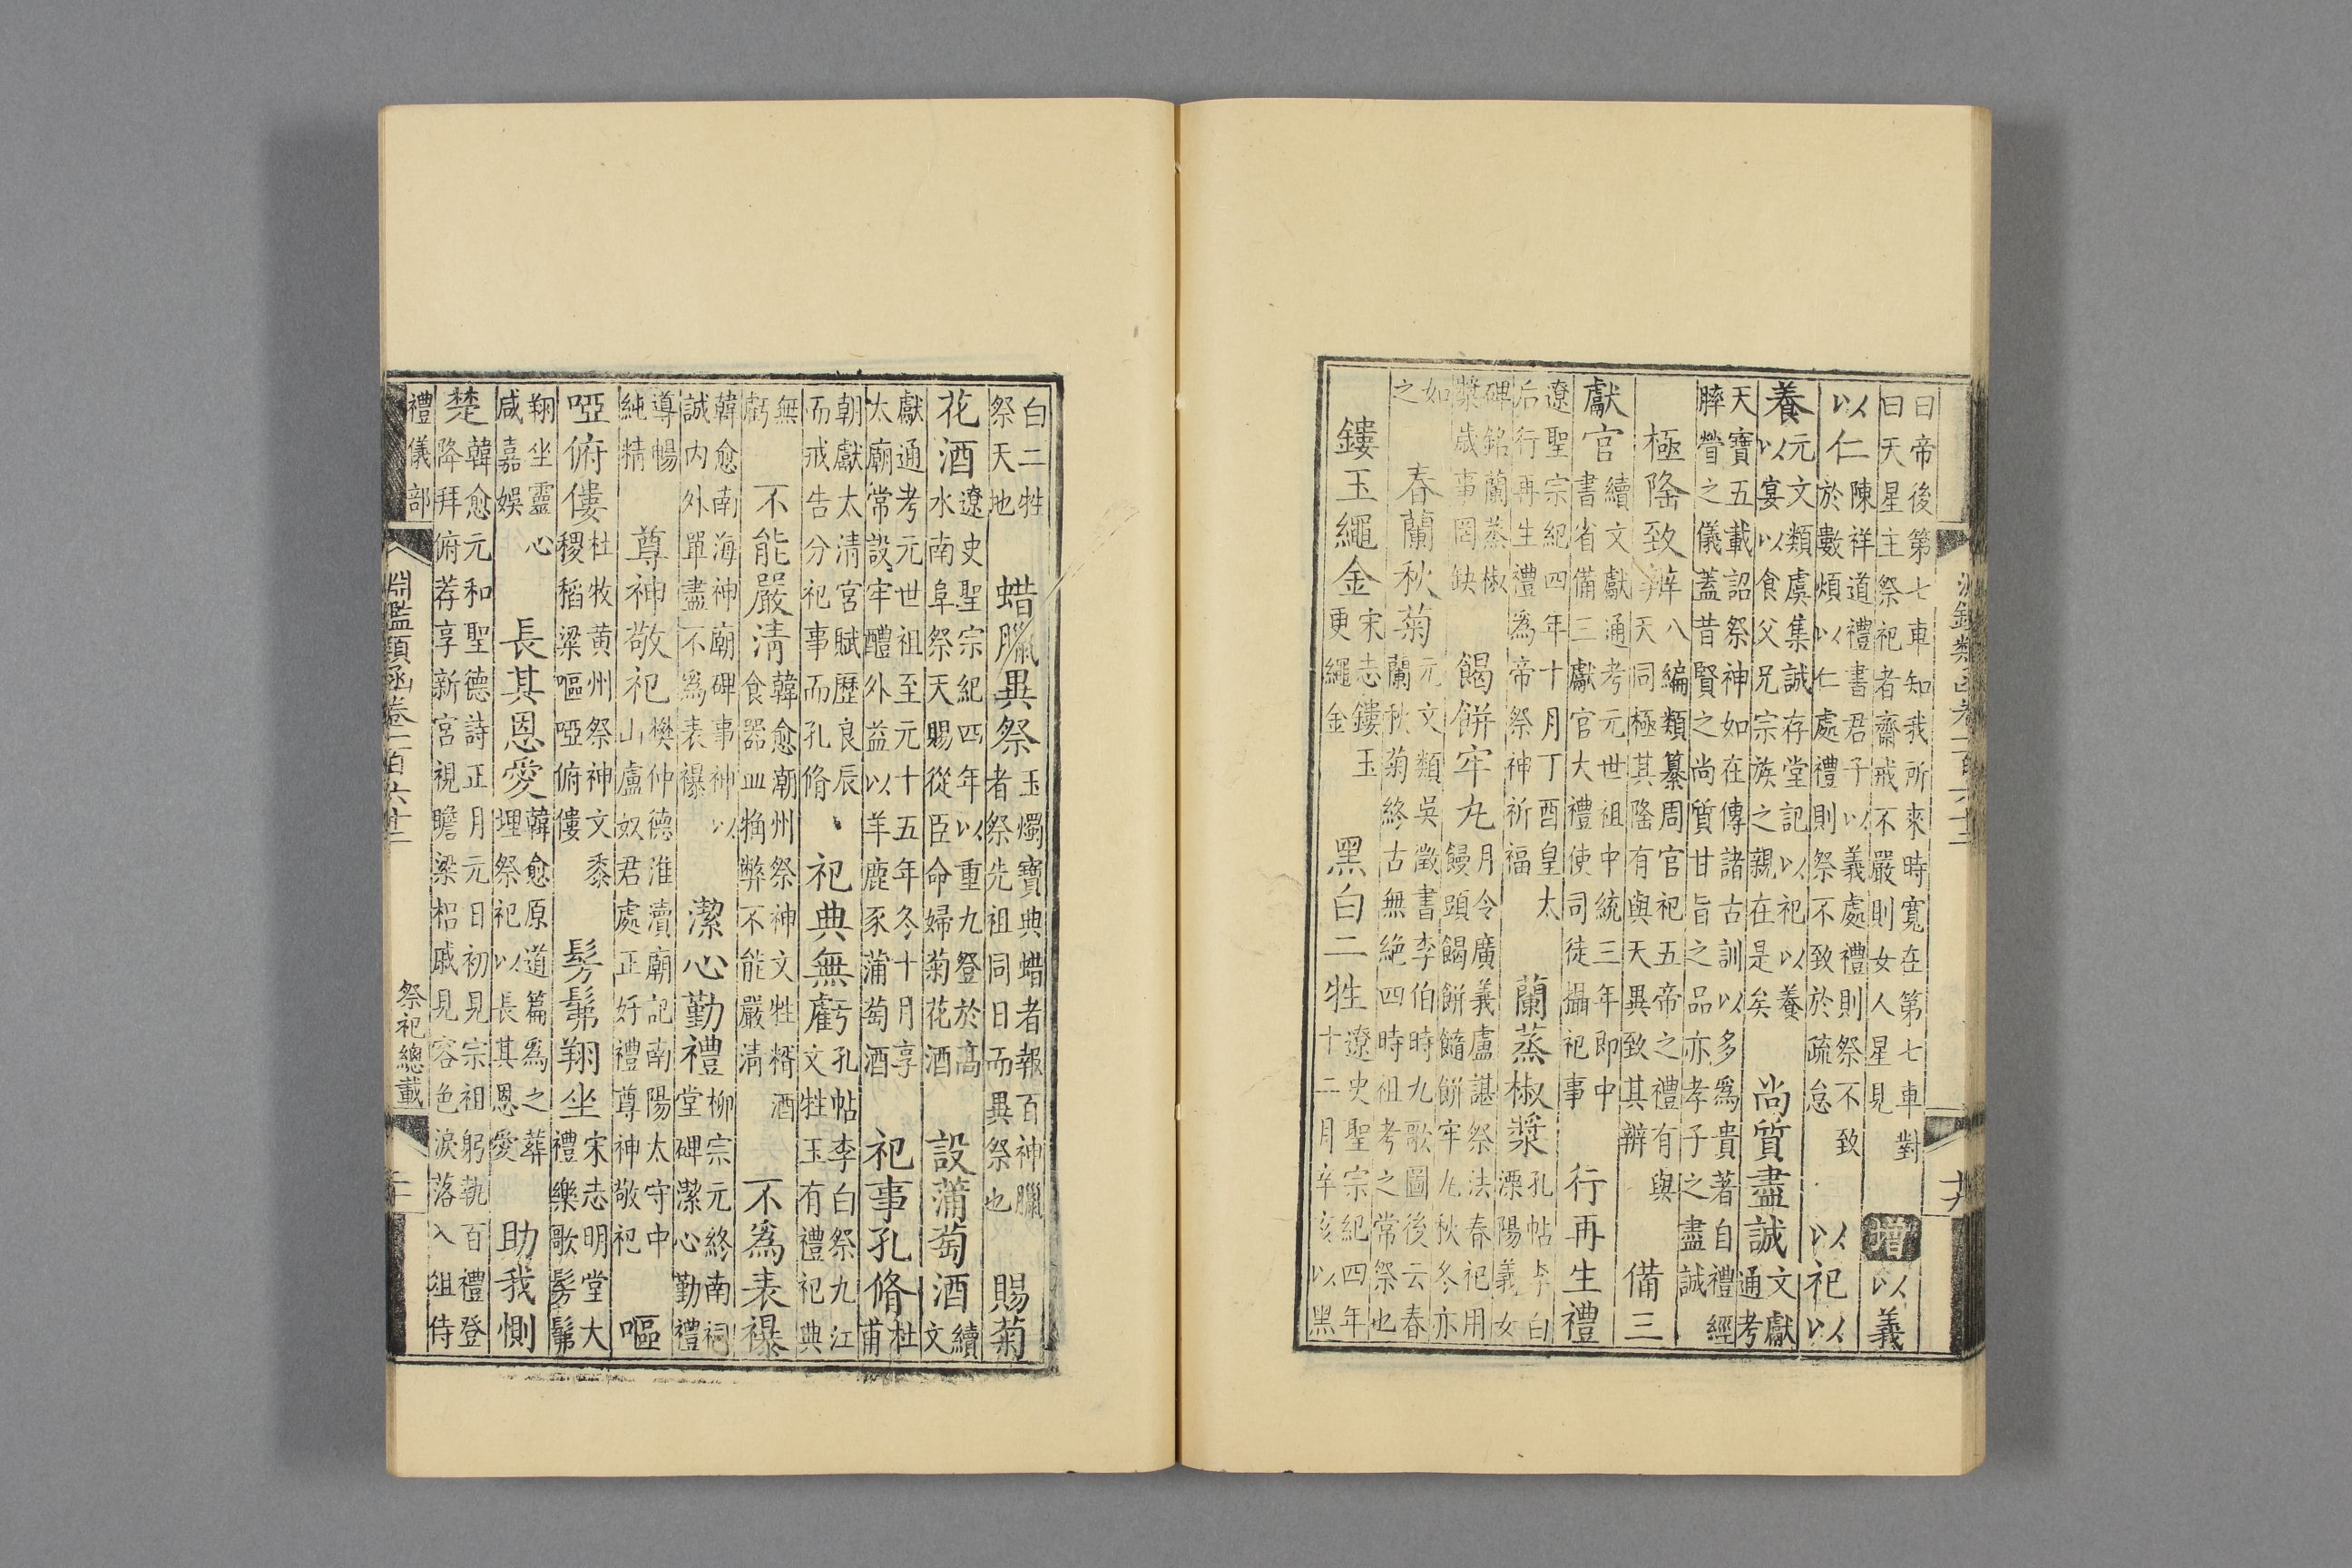 曰帝後第七車知我所來時寬在第七車對
曰天星主祭祀者齋戒不嚴則女人星見
增
以義
以仁
陳祥道禮書君子以義處禮則祭不致
於數煩以仁處禮則祭不致於疏怠
以祀以
養
元文類虞集誠存堂記以祀以養
以宴以食父兄宗族之親在是矣
尚質盡誠
文獻
通考
天寶五載詔祭神如在傳諸古訓以多爲貴著自禮經
膟膋之儀蓋昔賢之尚質甘旨之品亦孝子之盡誠
極隆致辨
八編類纂周官祀五帝之禮有與
天同極其隆有與天異致其辨
備三
獻官
續文獻通考元世祖中統三年即中
書省備三獻官大禮使司徒攝祀事
行再生禮
遼聖宗紀四年十月丁酉皇太
后行再生禮爲帝祭神祈福
蘭蒸椒漿
孔帖李白
溧陽義女
碑銘蘭蒸椒
漿歲事罔缺
餲餅牢九
月令廣義盧諶祭法春祀用
饅頭餲餅䭔餅牢九秋冬亦
如
之
春蘭秋菊
元文類吳澂書李伯時九歌圖後云春
蘭秋菊終古無絶四時祖考之常祭也
鏤玉繩金
宋志鏤玉
更繩金
黑白二牲
遼史聖宗紀四年
十二月辛亥以黑
白二牲
祭天地
蜡臘異祭
玉燭寶典蜡者報百神臘
者祭先祖同日而異祭也
賜菊
花酒
遼史聖宗紀四年以重九登於高
水南阜祭天賜從臣命婦菊花酒
設蒲萄酒
續
文
獻通考元世祖至元十五年冬十月享
太廟常設牢醴外益以羊鹿豕蒲萄酒
祀事孔脩
杜
甫
朝獻太清宮賦歷良辰
而戒吿分祀事而孔脩
祀典無虧
孔帖李白祭九江
文牲玉有禮祀典
無
虧
不能嚴清
韓愈潮州祭神文牲糈酒
食器皿牷弊不能嚴清
不爲表襮
韓愈南海神廟碑事神以
誠内外單盡不爲表襮
潔心勤禮
柳宗元終南祠
堂碑潔心勤禮
導暢
純精
尊神敬祀
樊仲德淮瀆廟記南陽太守中
山盧奴君處正好禮尊神敬祀
嘔
啞俯僂
杜牧黄州祭神文黍
稷稻粱嘔啞俯僂
髣髴翔坐
宋志明堂大
禮樂歌髣髴
翔坐靈心
咸嘉娛
長其恩愛
韓愈原道篇爲之葬
埋祭祀以長其恩愛
助我惻
楚
韓愈元和聖德詩正月元日初見宗祖躬執百禮登
降拜俯荐享新宮視瞻梁梠慼見容色淚落入俎侍
禮儀部
淵鑑類函卷一百六十二
祭祀總載